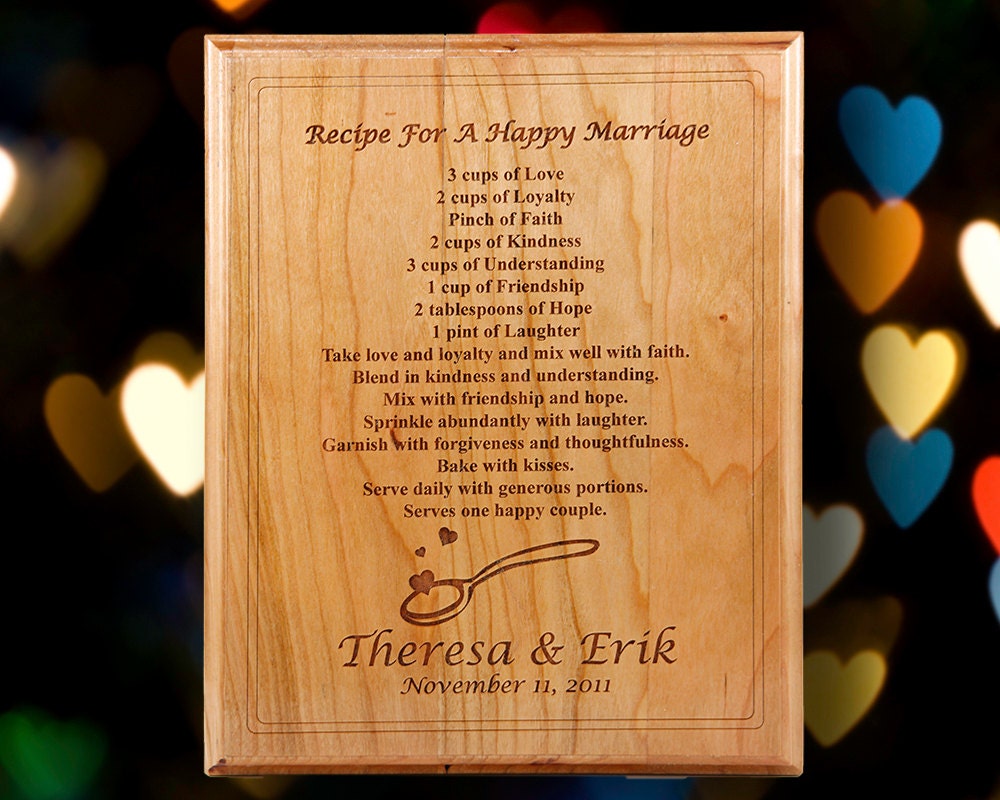 Recipe For A Happy Marriage
3 cups of Love
2 cups of Loyalty
Pinch of Faith
2 cups of Kindness
3 cups of Understanding
1 cup of Friendship
2 tablespoons of Hope
1 pint of Laughter
Take love and loyalty and mix well with faith.
Blend in kindness and understanding.
Mix with friendship and hope.
Sprinkle abundantly with laughter.
Garnish with forgiveness and thoughtfulness.
Bake with kisses.
Serve daily with generous portions.
Serves one happy couple.
Theresa & Erik
November 11, 2011